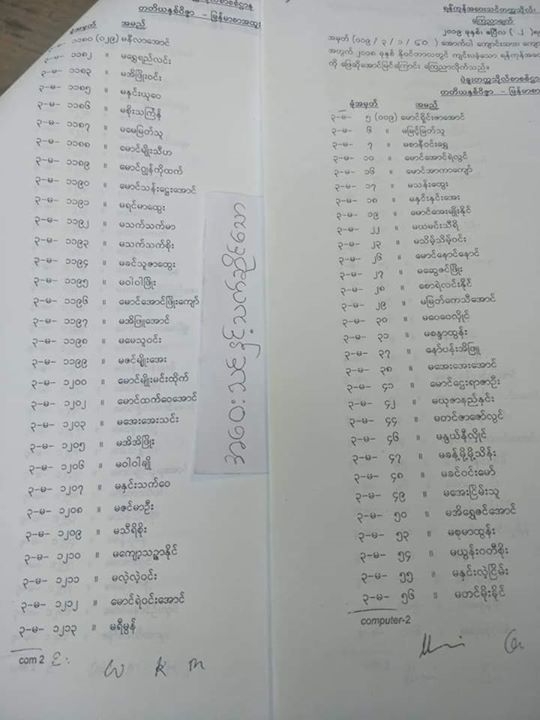 တတိယနှစ်ဝိဇ္ဇာ - မြန်မာစာအထူး
ခုံအမှတ် အမည်
၃-မ- ၁၁၈၀ (၀၂၉) မနီလာအောင်
၃-မ- ၁၁၈၂ ။ မရွှေရည်လင်း
၃-မ- ၁၁၈၃ ။ မအိဖြိုးဝင်း
၃-မ- ၁၁၈၅ ။ မနှင်းယုဝေ
၃-မ- ၁၁၈၆ ။ မစိုးသင်္ကြန်
၃-မ- ၁၁၈၇ ။ မမေမြတ်သူ
၃-မ- ၁၁၈၈ ။ မောင်မျိုးသီဟ
၃-မ- ၁၁၈၉ ။ မောင်ကျွန်ကိုထက်
၃-မ- ၁၁၉၀ ။ မောင်သန်းဌေးအောင်
၃-မ- ၁၁၉၁ ။ မရင်မာထွေး
၃-မ- ၁၁၉၂ ။ မသက်သက်မာ
၃-မ- ၁၁၉၃ ။ မသက်သက်စိုး
၃-မ- ၁၁၉၄ ။ မခင်သူဇာထွေး
၃-မ- ၁၁၉၅ ။ မဝါဝါဖြိုး
၃-မ- ၁၁၉၆ ။ မောင်အောင်ဖြိုးကျော်
၃-မ- ၁၁၉၇ ။ မအိဖြူအောင်
၃-မ- ၁၁၉၈ ။ မမေသူဝင်း
၃-မ- ၁၁၉၉ ။ မဇင်မျိုးအေး
၃-မ- ၁၂၀၀ ။ မောင်မျိုးမင်းထိုက်
၃-မ- ၁၂၀၂ ။ မောင်ထက်ဝေအောင်
၃-မ- ၁၂၀၃ ။ မအေးအေးသင်း
၃-မ- ၁၂၀၅ ။ မအိအိဖြိုး
၃-မ- ၁၂၀၆ ။ မဝါဝါချို
၃-မ- ၁၂၀၇ ။ မနှင်းသက်ဝေ
၃-မ- ၁၂၀၈ ။ မဇင်မာဦး
၃-မ- ၁၂၀၉ ။ မသီရိစိုး
၃-မ- ၁၂၁၀ ။ မကျော့သဥ္ဇာနိုင်
၃-မ- ၁၂၁၁ ။ မလဲ့လဲ့ဝင်း
၃-မ- ၁၂၁၂ ။ မောင်ရဲဝင်းအောင်
၃-မ- ၁၂၁၃ ။ မရီမွန်
com 2
အဝေးသင်နှင့်သက်ဆိုင်သော
ရန်ကုန်အဝေးသင်တက္ကသိုလ်
ကြေညာချက်
၂၀၀၉ ခုနှစ်၊ ဧပြီလ ( ၂ )
အမှတ် (၀၀၉ / ၃ / ၁ / ၄၀ ) အောက်ပါ ကျောင်းသား
အတွက် ၂၀၀၈ ခုနှစ် နိုဝင်ဘာလတွင် ကျင်းပခဲ့သော ရန်ကုန်အဝေး
ကို ဖြေဆိုအောင်မြင်ကြောင်း ကြေညာလိုက်သည်။
တတိယနှစ်ဝိဇ္ဇာ - မြန်မာစာ
ခုံအမှတ် အမည်
၃-မ- ၅ (၀၀၉) မောင်စိုင်းဇာအောင်
၃-မ- ၆ ။ မမြင့်မြတ်သူ
၃-မ- ၇ ။ မစာနီဝင်းရွှေ
၃-မ- ၁၀ ။ မောင်အောင်ရဲလွင်
၃-မ- ၁၆ ။ မောင်အာကာကျော်
၃-မ- ၁၇ ။ မသန်းထွေး
၃-မ- ၁၈ ။ မနှင်းနှင်းအေး
၃-မ- ၁၉ ။ မောင်အေးမျိုးနိုင်
၃-မ- ၂၂ ။ မယမင်းသီရိ
၃-မ- ၂၃ ။ မသိမ့်သိမ့်ဝင်း
၃-မ- ၂၆ ။ မောင်နောင်နောင်
၃-မ- ၂၇ ။ မဆွေဇင်ဖြိုး
၃-မ- ၂၈ ။ စောရဲလင်းနိုင်
၃-မ- ၂၉ ။ မမြတ်ကေသီအောင်
၃-မ- ၃၀ ။ မဝေဝေလှိုင်
၃-မ- ၃၁ ။ မစန္ဒာထွန်း
၃-မ- ၃၇ ။ နော်ပန်းအိဖြူ
၃-မ- ၃၈ ။ မအေးအေးအောင်
၃-မ- ၄၁ ။ မောင်ဌေးရာဇာဦး
၃-မ- ၄၂ ။ မယုဇာနည်နှင်း
၃-မ- ၄၄ ။ မတင်ဇာဇော်လွင်
၃-မ- ၄၆ ။ မနွယ်နီလှိုင်
၃-မ- ၄၇ ။ မခန့်မို့မို့သိန်း
၃-မ- ၄၈ ။ မခင်ဝင်းမော်
၃-မ- ၄၉ ။ မအေးငြိမ်းသူ
၃-မ- ၅၀ ။ မအိရွှေဇင်အောင်
၃-မ- ၅၃ ။ မစုမာထွန်း
၃-မ- ၅၄ ။ မယွန်းဝတီစိုး
၃-မ- ၅၅ ။ မနှင်းလဲ့ငြိမ်း
၃-မ- ၅၆ ။ မတင်မိုးခိုင်
computer-2